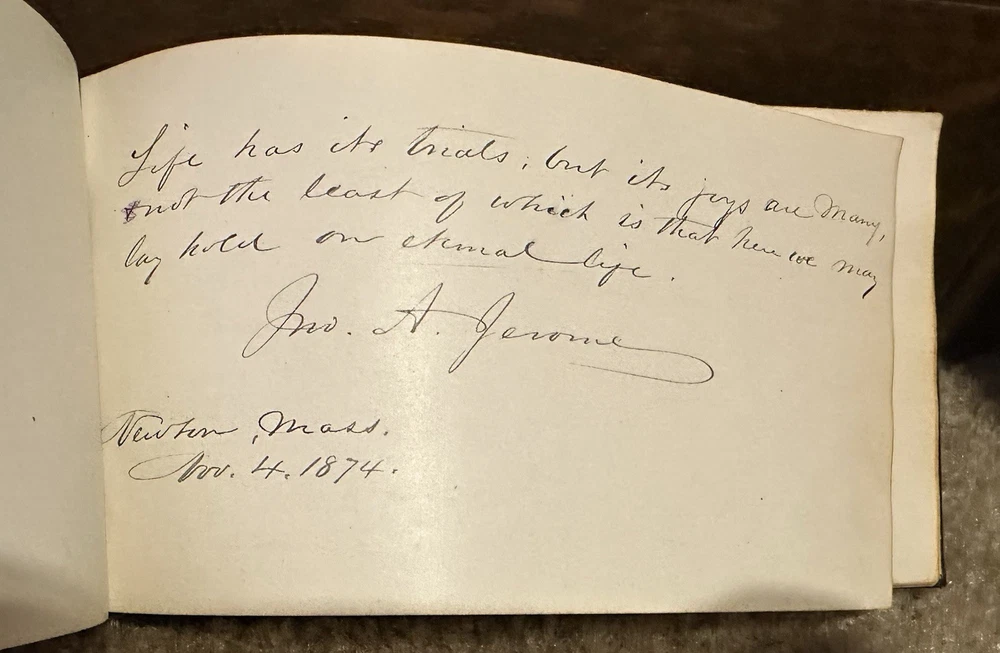 Life has its trials; but its joys are many,
not the least of which is that here we may
lay hold on eternal life.
Jno. A. Jerome
Newton, Mass.
Nov. 4. 1874.